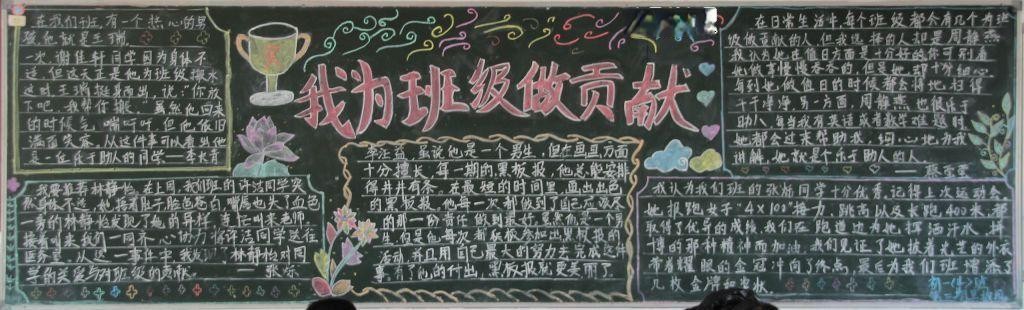 在我们班,有一个热心的男
孩,他就是王瑞。
一次,谢佳轩同学因为身体不
适,但这天正是他为班级搬水
这时王瑞挺身而出,说:"你放
下吧,我帮你搬。"虽然他回来
的时候气喘吁吁,但他依旧
满面笑容,从这件事可以看出他
是一位乐于助人的同学——李长青
我为班级做贡献
在日常生活中,每个班级都会有几个为班
级做贡献的人,但我选择的人却是周静燕
我认为她在值日方面是十分好的,你可别看
她做事慢慢吞吞的,但是她却十分细心,
每到她做值日的时候都会将地扫得
干干净净,另一方面,周静燕也很乐于
助人,每当我有英语或者数学难题时
她都会过来帮助我,细心地为我
讲解,她就是个乐于助人的人。
我要推荐林静怡,在上周,我们班的许洁同学突
然身体不适,她捂着肚子脸色苍白,嘴唇也失了血色
一旁的林静怡发现了她的异样,连忙叫来老师,
接着叫来我们一同齐心协力将许洁同学送往
医务室,从这一事件中我
林静怡对同
学的关爱与对班级的贡献。
虽说他是一个男生,但在画画方面
十分擅长,每一期的黑板报,他总能安排
得井井有条,在最短的时间里画出出色
的黑板报,他每一次都做到了自己
的那一份责任做到最好,虽然他是一个男
生,但是他每次都积极参加出黑板报的
活动,并且用自己最大的努力去完成这件
事,有了他的付出,黑板报就更美丽了
我认为我们班的张 同学十分优秀,记得上次运动会
她报跑女子"4×100"接力,跳高以及长跑400米,都
取得了优异的成绩,我们在跑道边为她挥洒汗水、拼
搏的那种精神而加油,我们见证了她披着光芒的外衣
带着耀眼的金冠冲向了终点,最后为我们班增添了
几枚金牌和奖状